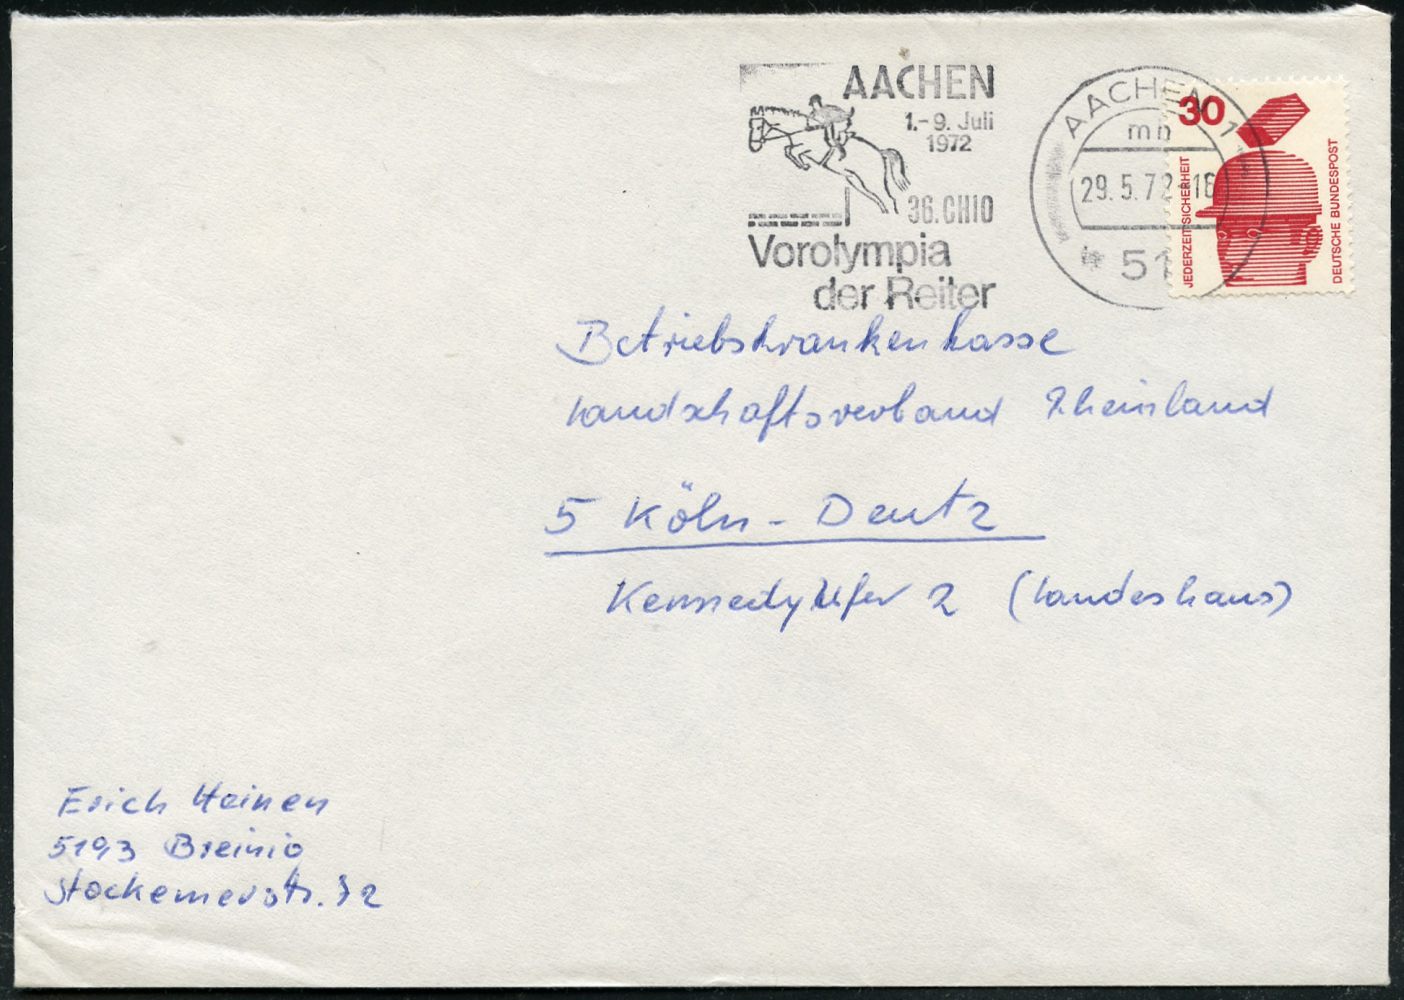 AACHEN
1.-9. Juli
1972
36. CHIO
Vorolympia
der Reiter
AACHEN 1
mh
29.5.72-16
51
30
JEDERZEIT SICHERHEIT
DEUTSCHE BUNDESPOST
Betriebskrankenkasse
Landschaftsverband Rheinland
5 Köln-Deutz
Kennedy Ufer 2 (Landeshaus)
Erich Heinen
5193 Breinig
Stockemerstr. 32